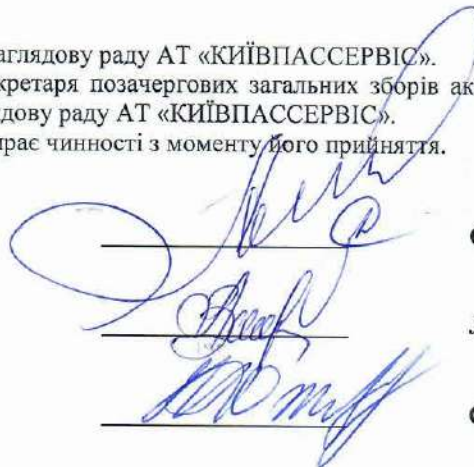 аглядову раду АТ «КИЇВПАССЕРВІС».
кретаря позачергових загальних зборів ак
дову раду АТ «КИЇВПАССЕРВІС».
ирає чинності з моменту його прийняття.